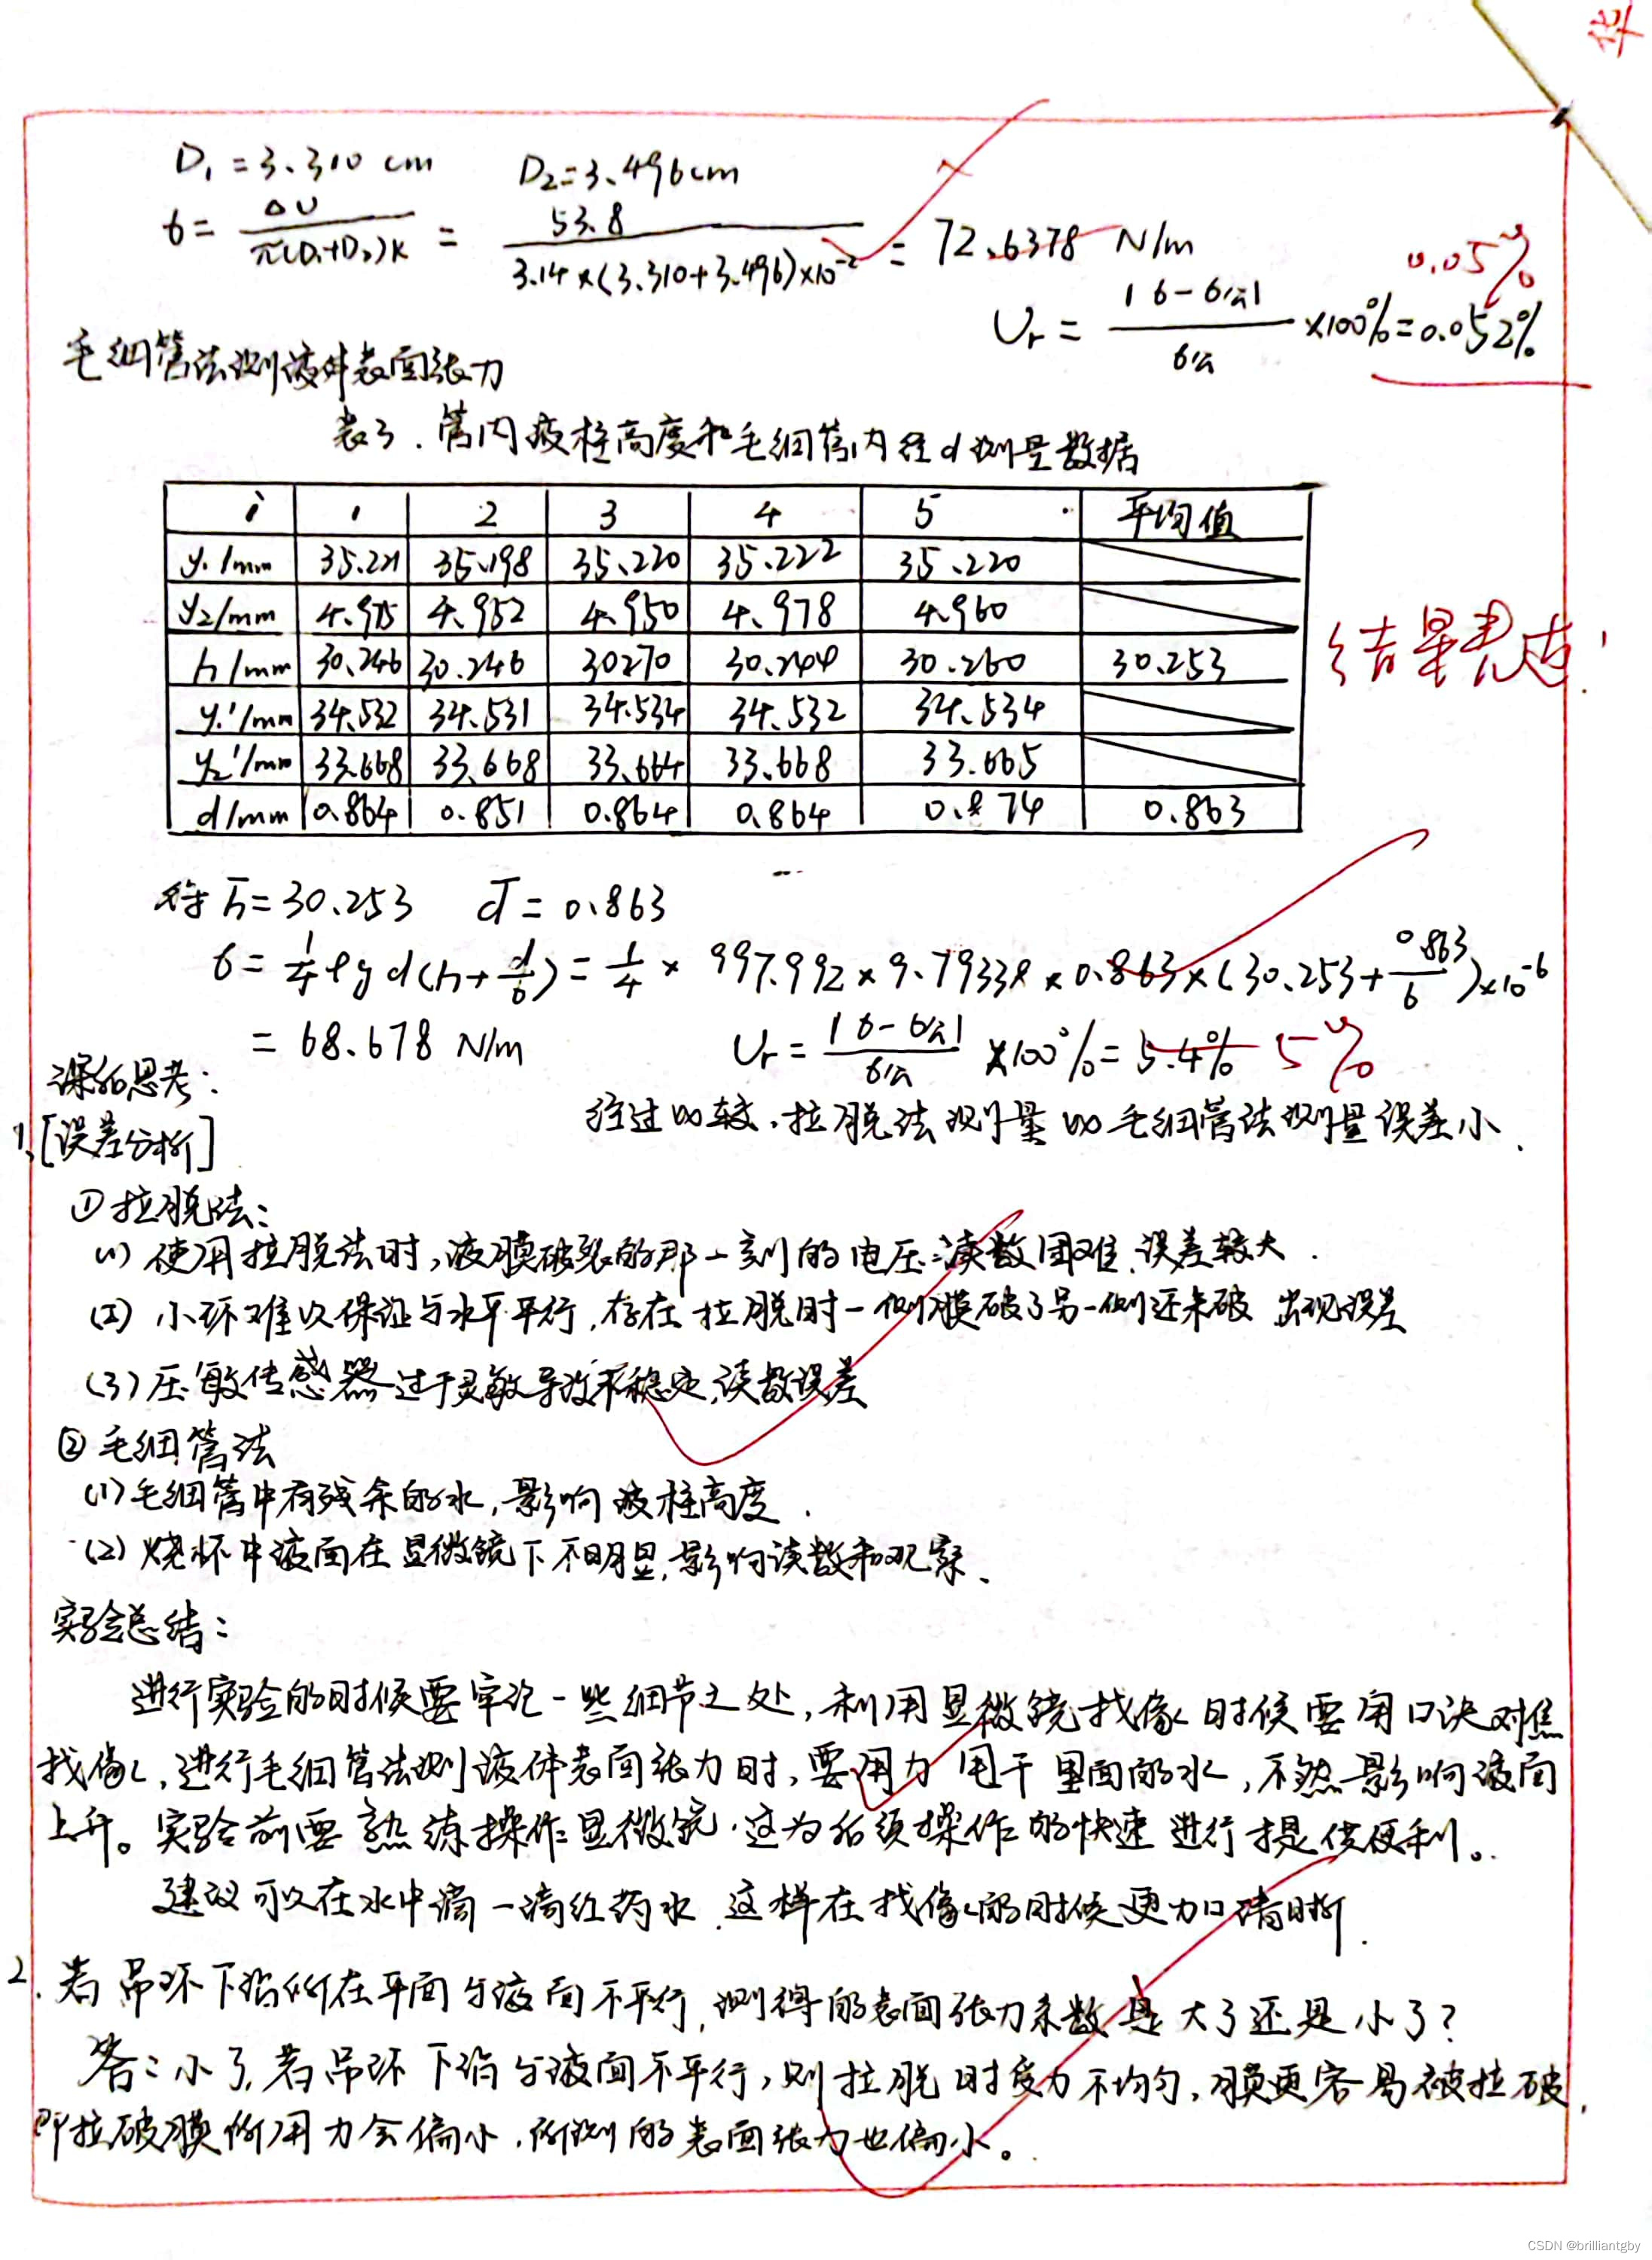 华
D₁ = 3.310 cm D₂ = 3.496 cm
б = ΔU / π(D₁+D₂)K = 53.8 / 3.14×(3.310+3.496)×10⁻² = 72.6378 N/m
0.05%
Ur = |б-б公| / б公 ×100% = 0.052%
毛细管法测液体表面张力
表3. 管内液柱高度和毛细管内径d测量数据
i 1 2 3 4 5 平均值
y₁/mm 35.221 35.198 35.220 35.222 35.220
y₂/mm 4.975 4.952 4.950 4.978 4.960
h/mm 30.246 30.246 30270 30.244 30.260 30.253
y₁'/mm 34.532 34.531 34.534 34.532 34.534
y₂'/mm 33.668 33.668 33.664 33.668 33.665
d/mm 0.864 0.851 0.864 0.864 0.874 0.863
结果表达!
得 h̄ = 30.253 d̄ = 0.863
б = 1/4 ρgd(h+d/6) = 1/4 × 997.992×9.79338×0.863×(30.253+0.863/6)×10⁻⁶
= 68.678 N/m Ur = |б-б公| / б公 ×100% = 5.4% 5%
课后思考:
经过比较,拉脱法测量比毛细管法测量误差小.
1、[误差分析]
①拉脱法:
(1) 使用拉脱法时,液膜破裂的那一刻的电压读数困难,误差较大.
(2) 小环难以保证与水平平行,存在拉脱时一侧膜破了另一侧还未破 出现误差
(3) 压敏传感器过于灵敏导致不稳定,读数误差
②毛细管法
(1) 毛细管中有残余的水,影响液柱高度.
(2) 烧杯中液面在显微镜下不明显,影响读数和观察、
实验总结:
进行实验的时候要牢记一些细节之处,利用显微镜找像时候要用口诀对焦
找像,进行毛细管法测液体表面张力时,要用力甩干里面的水,不然影响液面
上升。实验前要熟练操作显微镜.这为后续操作的快速进行提供便利。
建议可以在水中滴一滴红药水.这样在找像的时候更加清晰.
2.若吊环下沿所在平面与液面不平行,测得的表面张力系数是大了还是小了?
答:小了,若吊环下沿与液面不平行,则拉脱时受力不均匀,膜更容易被拉破,
即拉破膜所用力会偏小.所测的表面张力也偏小。
CSDN @brilliantgby